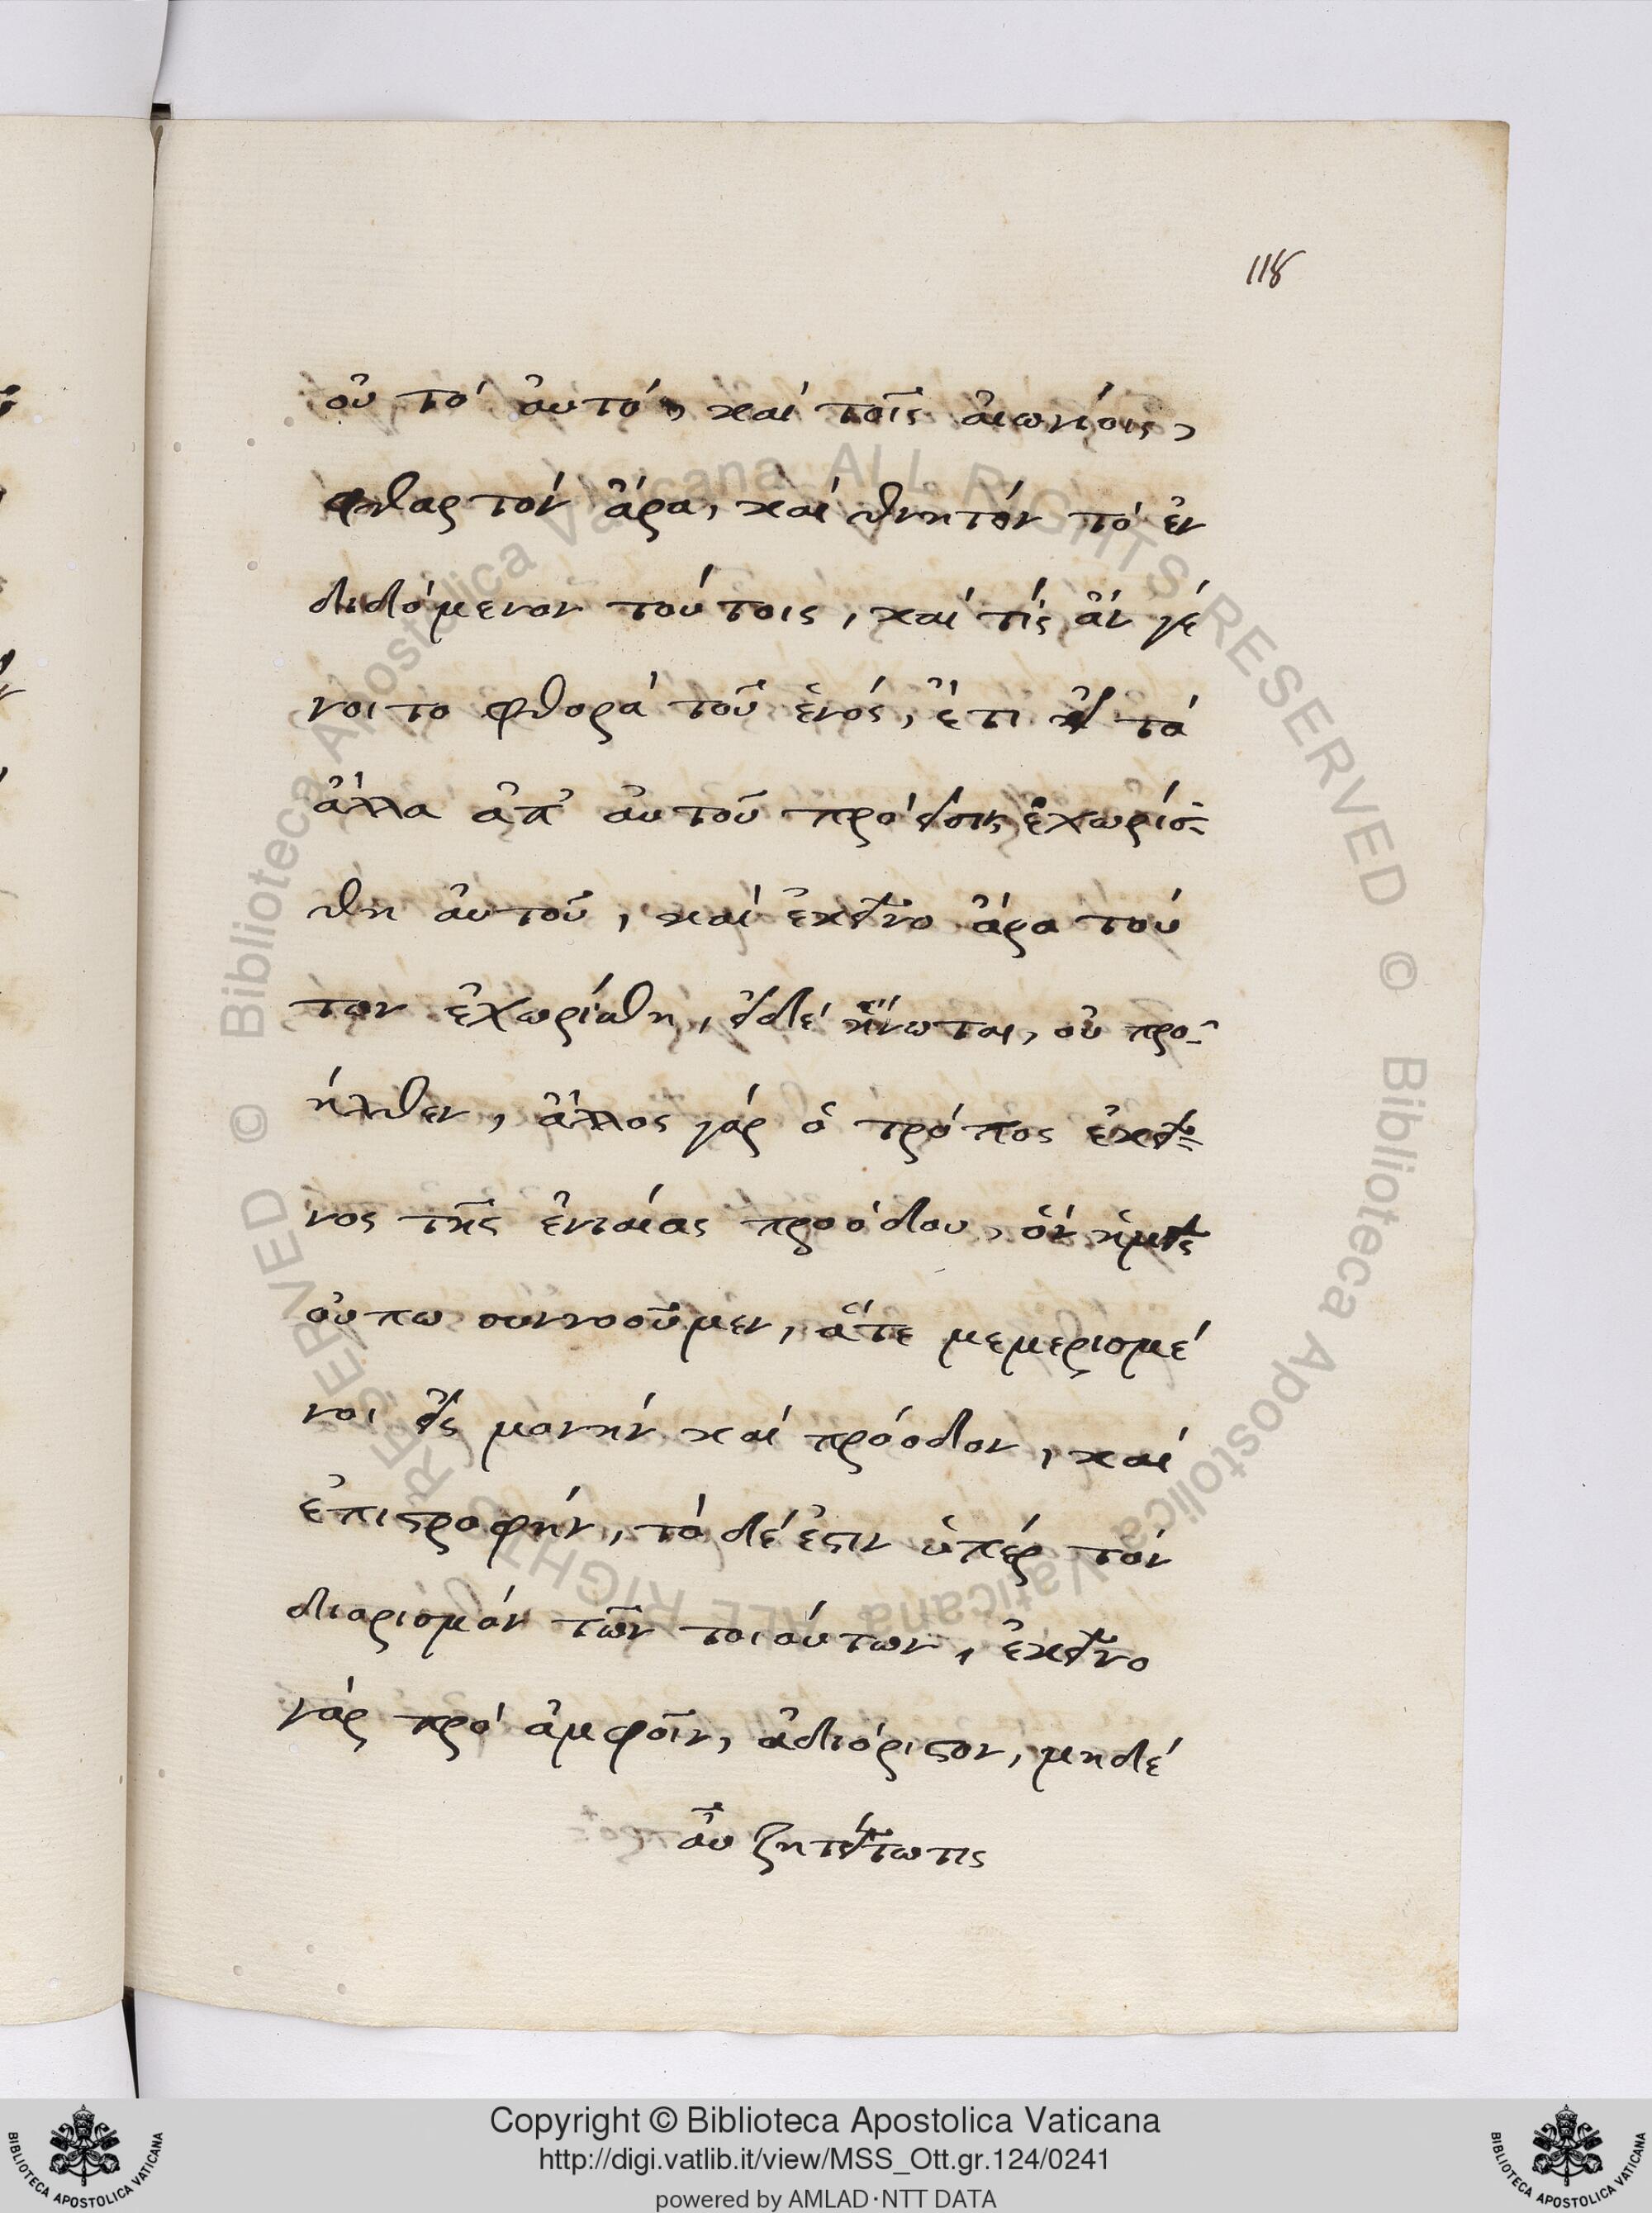 118
οὐ τὸ ἀυτό, καὶ τοῖς ἀιωνίοις,
φθαρτὸν ἄρα, καὶ θνητὸν τὸ ἐν
διδόμενον τούτοις, καὶ τίς ἂν γέ
νοιτο φθορὰ τοῦ ἑνός, ἔτι εἰ τὰ
ἄλλα ἀπ' ἀυτοῦ πρόεισιν ἐχωρίσ-
θη ἀυτοῦ, καὶ ἐκεῖνο ἄρα τού
των ἐχωρίσθη, εἰ δὲ ἥνωται, οὐ προ-
ήλθεν, ἄλλος γὰρ ὁ τρόπος ἐκεῖ-
νος τῆς ἑνιαίας προόδου, ὃν ἡμεῖς
οὔπω συννοοῦμεν, ἅτε μεμερισμέ
νοι εἰς μονὴν καὶ πρόοδον, καὶ
ἐπιστροφήν, τὸ δέ ἐστιν ὑπὲρ τὸν
διορισμὸν τῶν τοιούτων, ἐκεῖνο
γὰρ πρὸ ἀμφοῖν, ἀδιόριστον, μηδὲ
ἀῦ ζητείτω τις
Copyright © Biblioteca Apostolica Vaticana
http://digi.vatlib.it/view/MSS_Ott.gr.124/0241
powered by AMLAD·NTT DATA
BIBLIOTECA APOSTOLICA VATICANA
BIBLIOTECA APOSTOLICA VATICANA
© Biblioteca Apostolica Vaticana ALL RIGHTS RESERVED
© Biblioteca Apostolica Vaticana ALL RIGHTS RESERVED